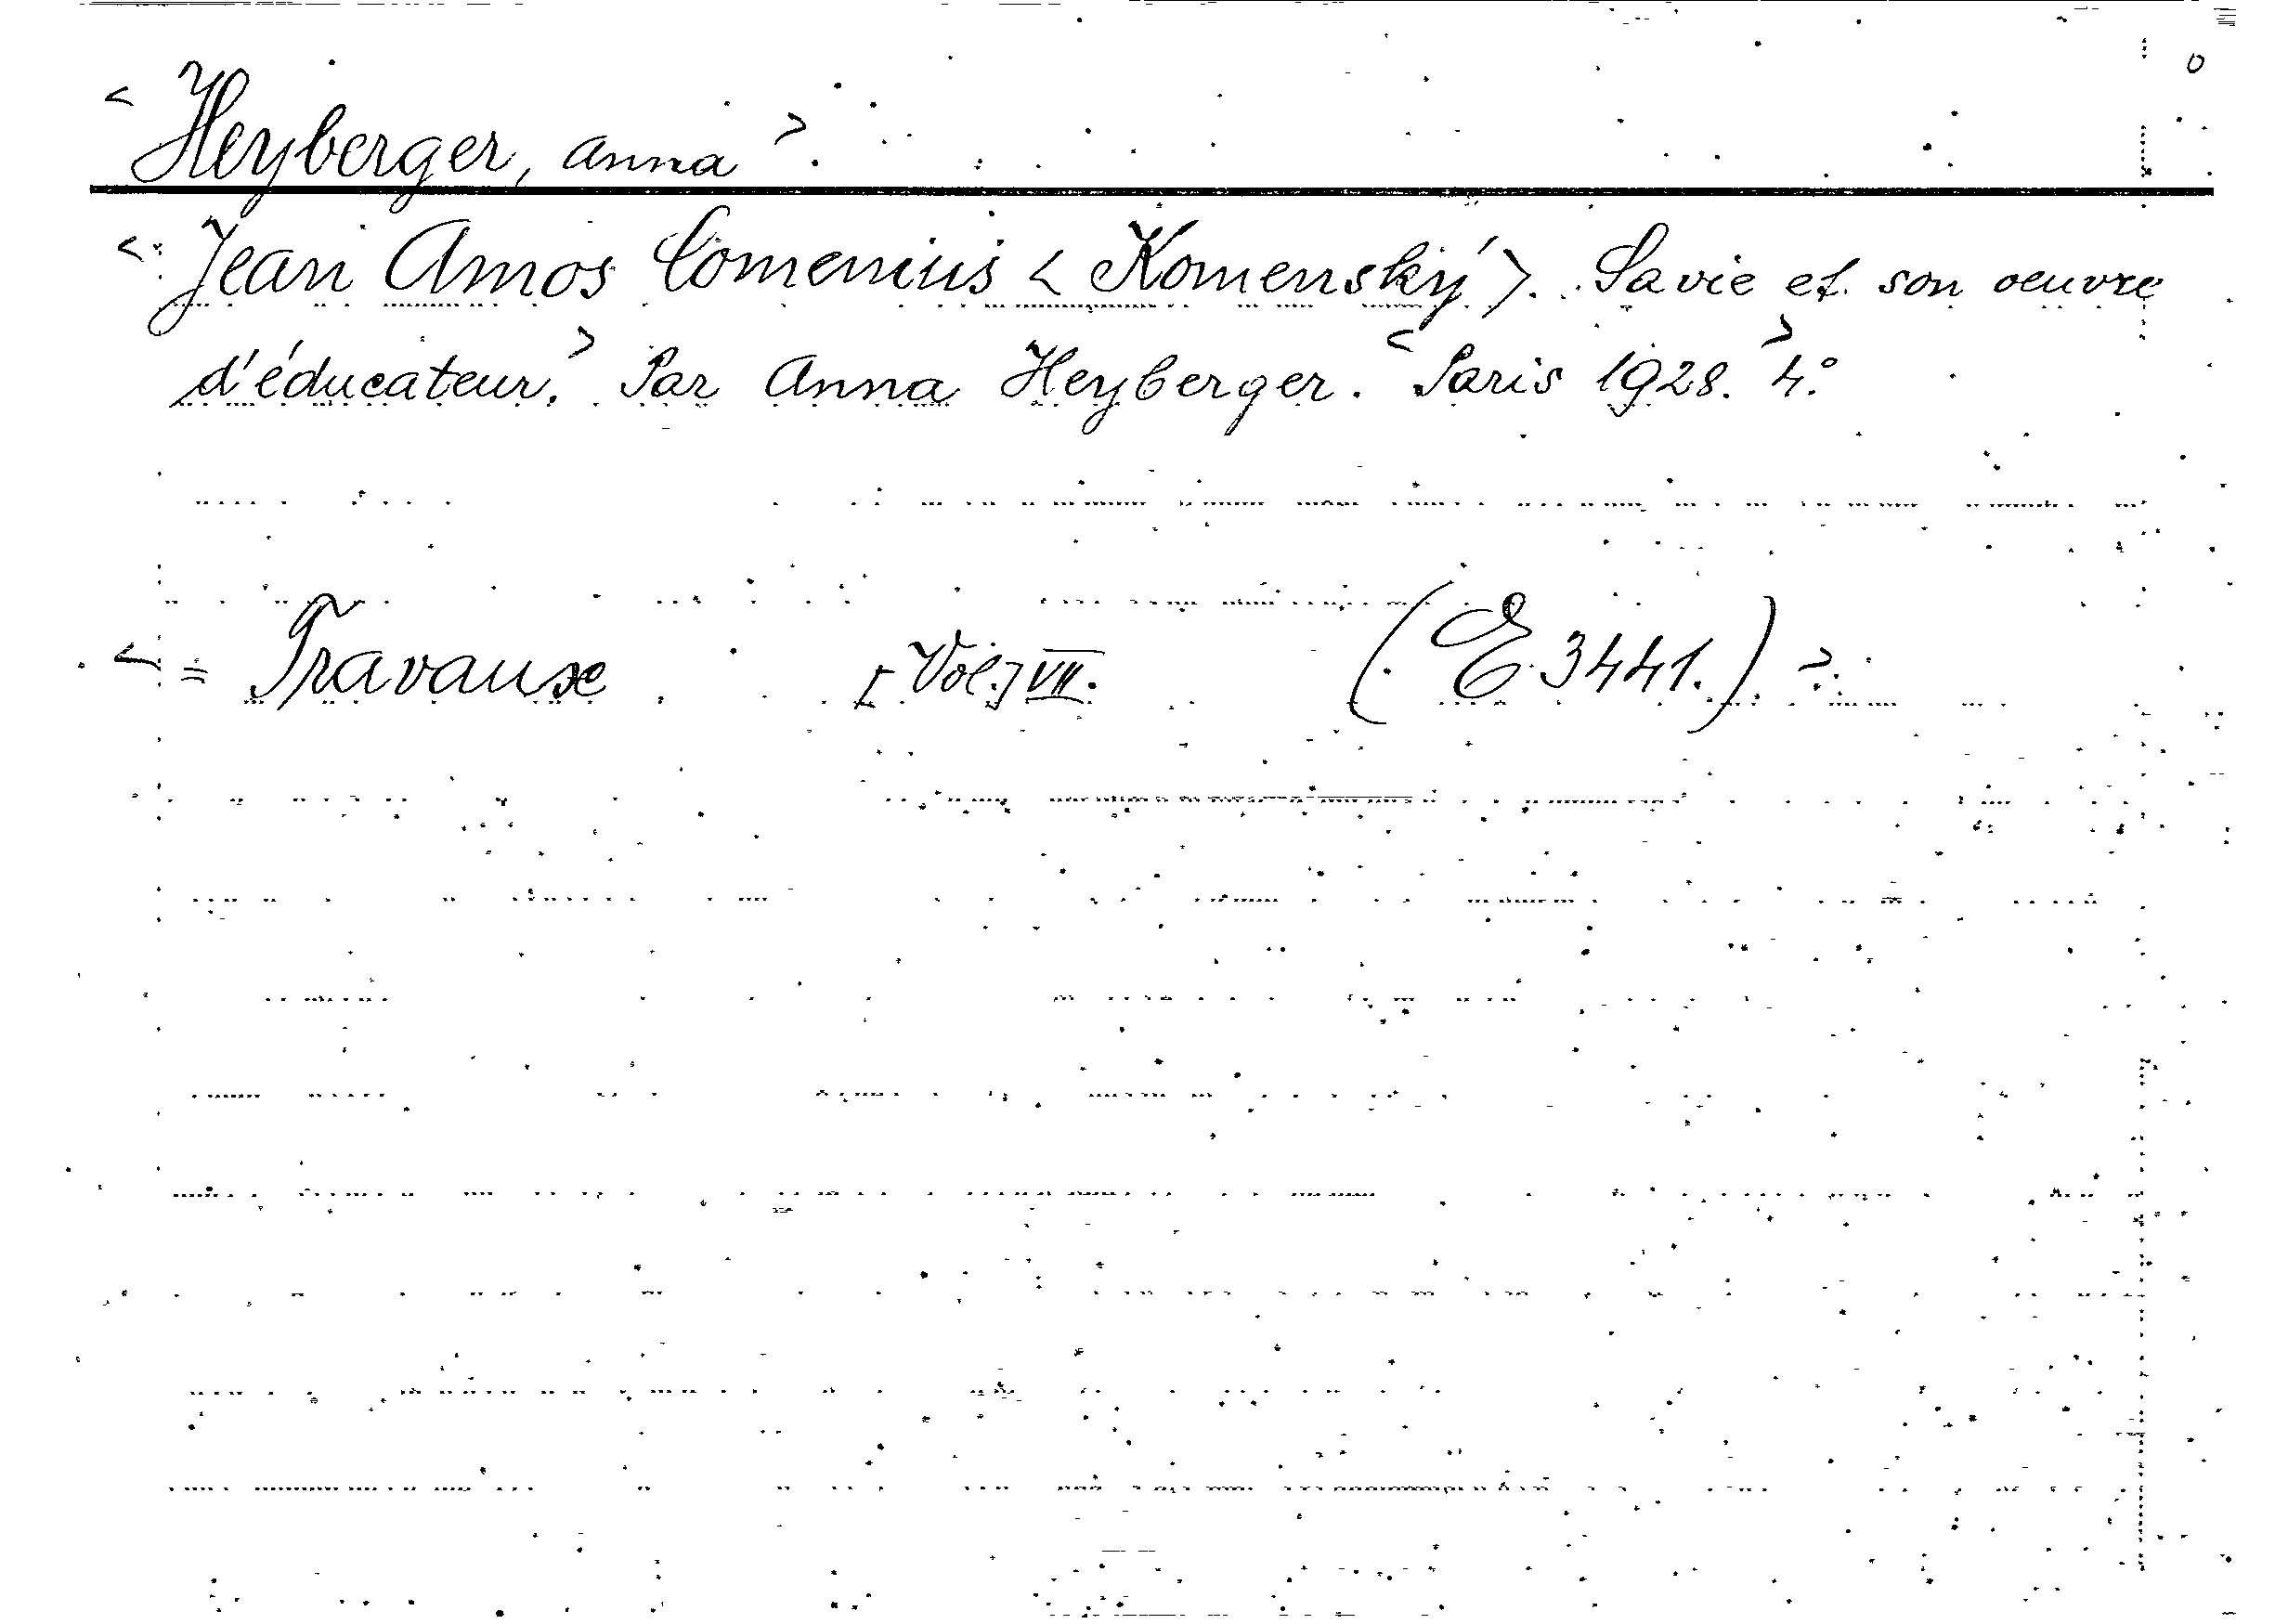 < Heyberger, Anna >.
< Jean Amos Comenius < Komenský >. Sa vie et son oeuvre
d'éducateur. > Par Anna Heyberger. < Paris 1928. > 4.°
< = Travaux [Vol.] VII. (E 3441.) >.